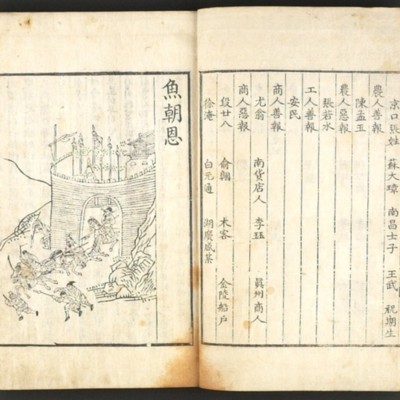 京口張姓 蘇大璋 南昌士子 王武 祝期生
農人善報
陳孟玉
農人惡報
張若水
工人善報
安民
商人善報
尤翁 南貨店人 李珏 眞州商人
商人惡報
殷廿八 俞朝 木客 金陵船戶
徐淹 白元通 湖廣盛某
魚朝恩